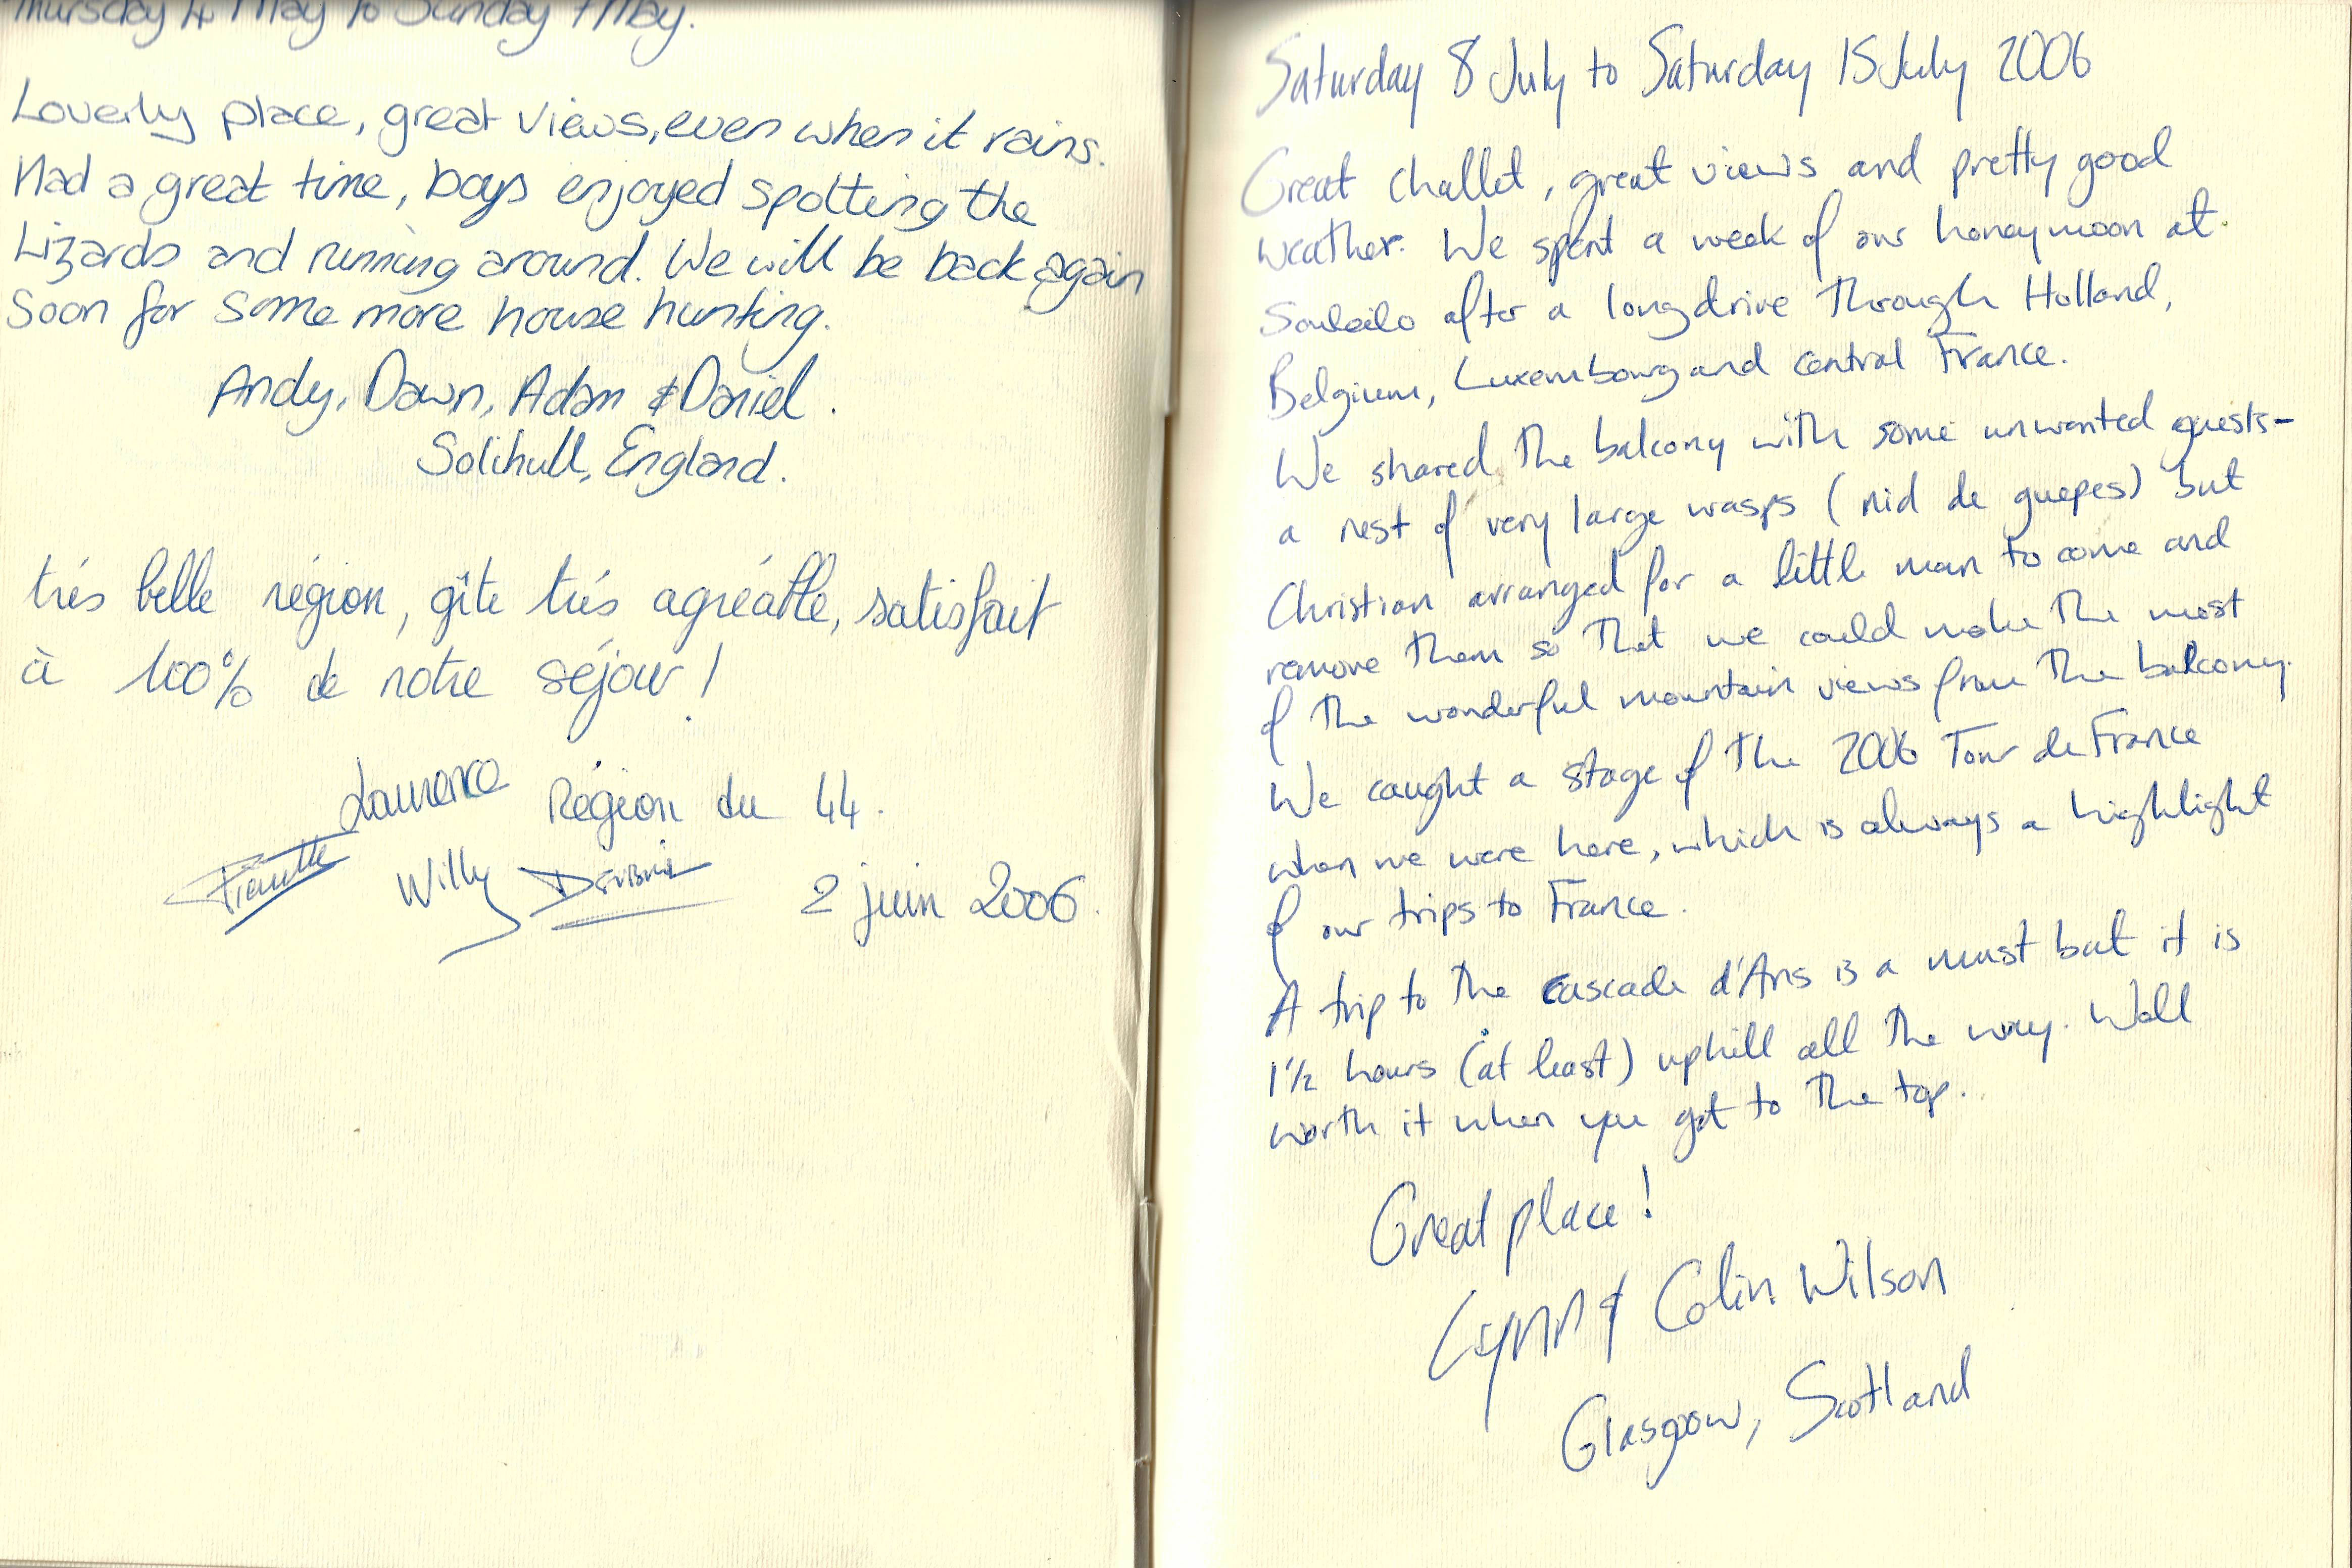 Thursday 4 May to Sunday 7 May.
Loverly place, great views, even when it rains.
Had a great time, boys enjoyed spotting the
Lizards and running around. We will be back again
Soon for some more house hunting.
Andy, Dawn, Adam & Daniel.
Solihull, England.
trés belle région, gîte trés agréable, satisfait
à 100% de notre séjour !
Laurence Région du 44.
Willy
2 juin 2006.
Saturday 8 July to Saturday 15 July 2006
Great challet, great views and pretty good
weather. We spent a week of our honeymoon at
Souleilo after a long drive through Holland,
Belgium, Luxembourg and central France.
We shared the balcony with some unwanted guests-
a nest of very large wasps (nid de guepes) but
Christian arranged for a little man to come and
remove them so that we could make the most
of the wonderful mountain views from the balcony.
We caught a stage of the 2006 Tour de France
when we were here, which is always a highlight
of our trips to France.
A trip to the cascade d'Ars is a must but it is
1½ hours (at least) uphill all the way. Well
worth it when you get to the top.
Great place!
Lynn & Colin Wilson
Glasgow, Scotland